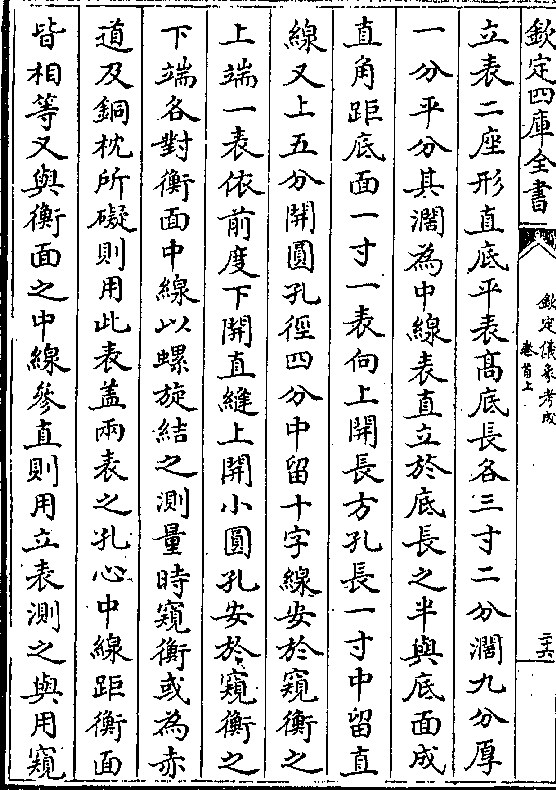 欽定四庫全書
欽定儀象考成
卷首上
二十六
立表二座形直底平表髙底長各三寸二分濶九分厚
一分平分其濶為中線表直立於底長之半與底面成
直角距底面一寸一表向上開長方孔長一寸中留直
線又上五分開圓孔徑四分中留十字線安於窺衡之
上端一表依前度下開直縫上開小圓孔安於窺衡之
下端各對衡面中線以螺旋結之測量時窺衡或為赤
道及銅枕所礙則用此表盖兩表之孔心中線距衡面
皆相等又與衡面之中線參直則用立表測之與用窺